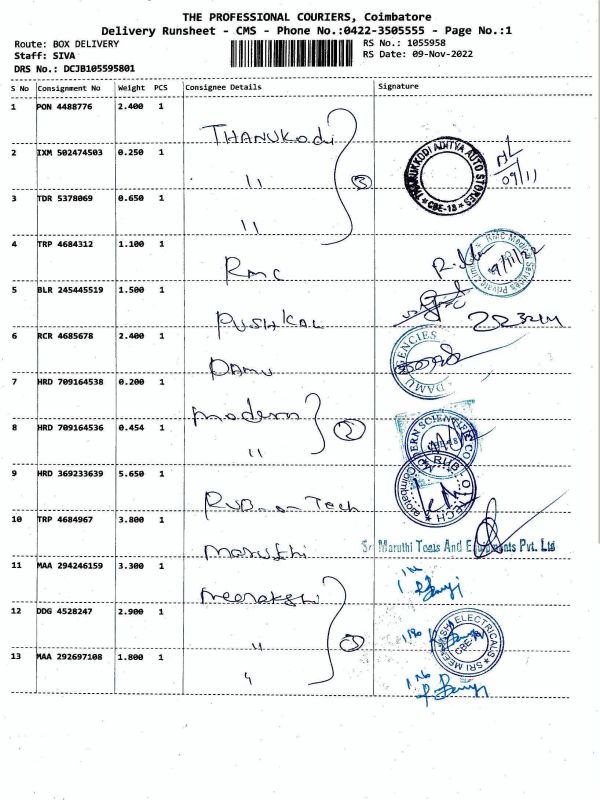 THE PROFESSIONAL COURIERS, Coimbatore
Delivery Runsheet - CMS - Phone No.:0422-3505555 - Page No.:1
Route: BOX DELIVERY
Staff: SIVA
DRS No.: DCJB105595801
RS No.: 1055958
RS Date: 09-Nov-2022
S No Consignment No Weight PCS Consignee Details Signature
1 PON 4488776 2.400 1 THANUKODI
2 IXM 502474503 0.250 1 11 3 THANUKKODI ADITYA AUTO STORES * CBE-18 * 09/11
3 TDR 5378069 0.650 1 11
4 TRP 4684312 1.100 1 RMC RMC Medical Services Private Limited 9/11/22
5 BLR 245445519 1.500 1 PUSHKAL
6 RCR 4685678 2.400 1 DAMU DAMU AGENCIES
7 HRD 709164538 0.200 1 modern
8 HRD 709164536 0.454 1 11 2 ERN SCIENTIFIC CO
9 HRD 369233639 5.650 1 Tech RUB O TECH * Coimbatore *
10 TRP 4684967 3.800 1 maruthi Sri Maruthi Tools And Equipments Pvt. Ltd
11 MAA 294246159 3.300 1 meenakshi
12 DDG 4528247 2.900 1 11 3 SRI MEENAKSHI ELECTRICALS * CBE
13 MAA 292697108 1.800 1 11